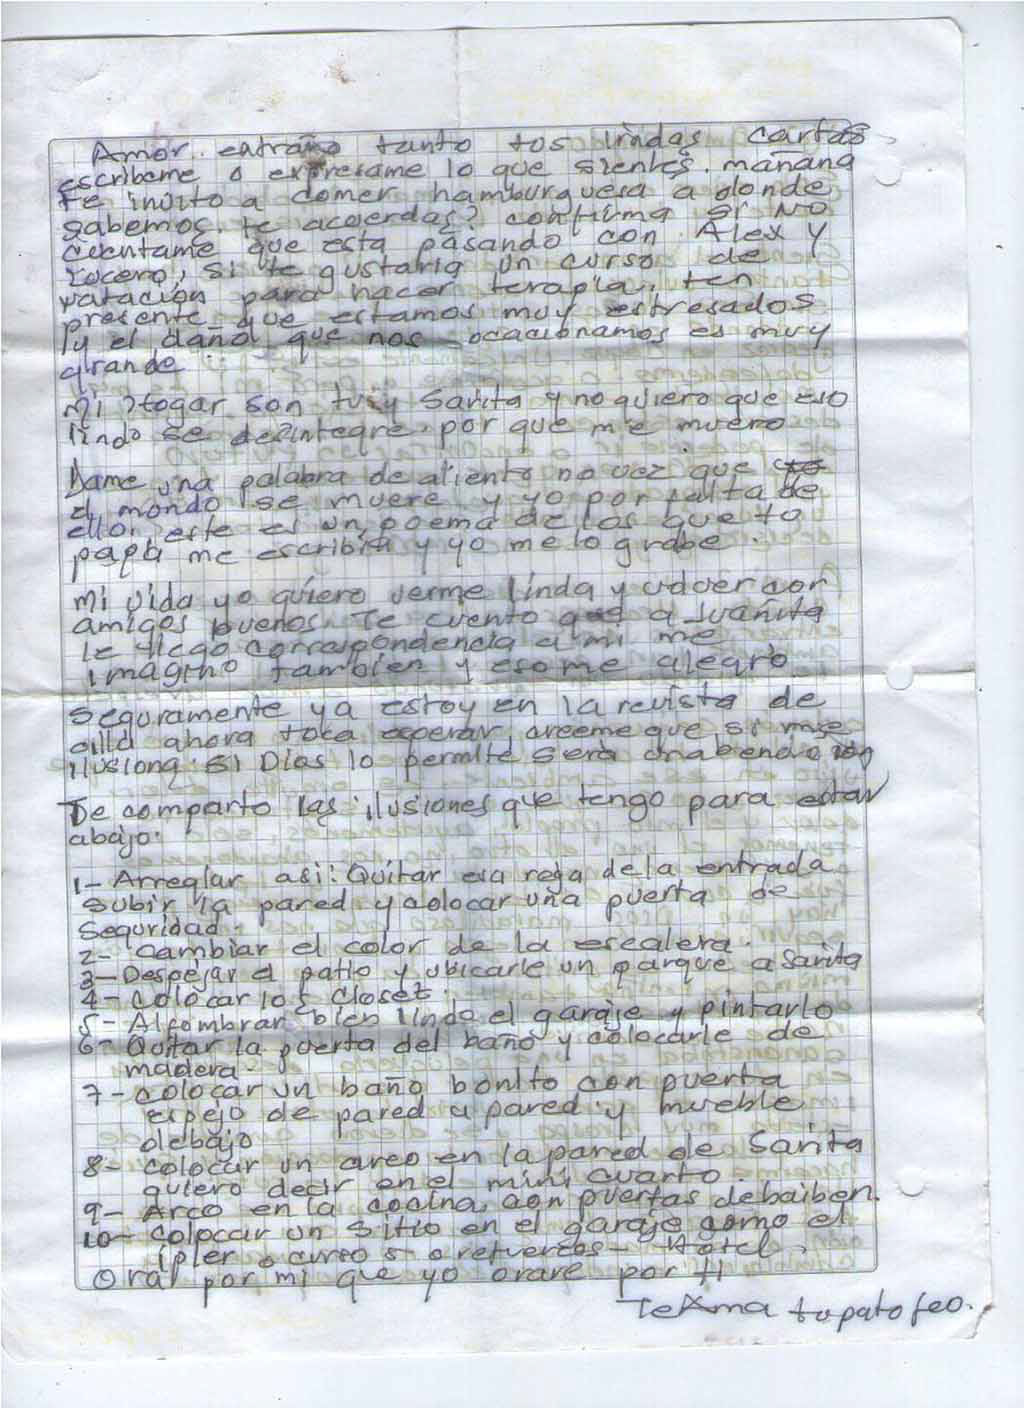 Amor. entraño tanto tus lindas cartas
escribeme o expresame lo que sientes. mañana
te invito a comer hamburguesa a donde
sabemos. te acuerdas? confirma si NO
cuentame que esta pasando con Alex y
Lucero, si te gustaria un curso de
natacion para hacer terapia, ten
presente que estamos muy estresados
y el daño que nos ocacionamos es muy
grande
Mi Hogar son tu y Sarita y no quiero que eso
lindo se desintegre. por que me muero
Dame una palabra de aliento no vez que
el mondo se muere y yo por falta de
ello, este es un poema de los que tu
papá me escribia y yo me lo grabe.
Mi vida yo quiero verme linda y volver con
amigos buenos. Te cuento que a Juanita
le llego correspondencia a mi me
imagino tambien y eso me alegro
Seguramente ya estoy en la revista de
alla ahora toca esperar, creeme que si me
ilusiona. si Dios lo permite sera una bendicion
Te comparto las ilusiones que tengo para estar
abajo:
1- Arreglar asi: Quitar esa reja de la entrada
subir la pared y colocar una puerta de
seguridad.
2- Cambiar el color de la escalera.
3- Despejar el patio y ubicarle un parque a Sarita
4- Colocar los closet.
5- Alfombrar bien lindo el garaje y pintarlo
6- Quitar la puerta del baño y colocarle de
madera.
7- colocar un baño bonito con puerta
espejo de pared a pared y mueble
debajo
8- colocar un arco en la pared de Sarita
quiero decir en el mini cuarto.
9- Arco en la cocina con puertas de baiben.
10- colocar un sitio en el garaje como el
ipler o cursos o refuerzos - Hotel.
Orá por mi que yo orare por ti
Te Ama tu pato feo.